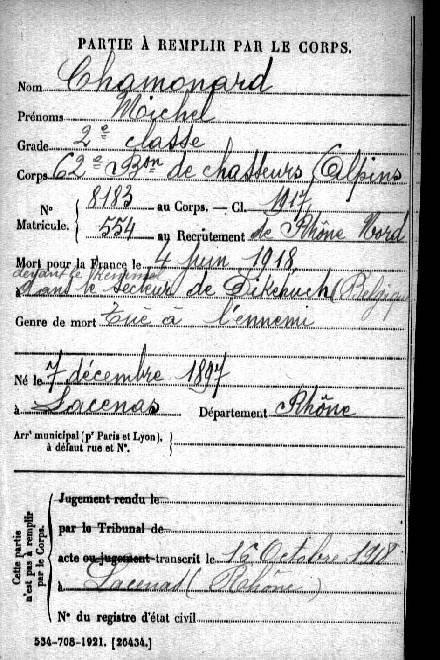 PARTIE À REMPLIR PAR LE CORPS.
Nom Chamonard
Prénoms Michel
Grade 2e classe
Corps 62e Bon de chasseurs Alpins
N° Matricule. { 8183 au Corps. — Cl. 1917
554 au Recrutement de Rhône Nord
Mort pour la France le 4 Juin 1918
devant le
à dans le secteur de Dikebuch (Belgique
Genre de mort Tué à l'ennemi
Né le 7 décembre 1897
à Lacenas Département Rhône
Arrt municipal (pr Paris et Lyon),
à défaut rue et N°.
Cette partie n'est pas à remplir par le Corps.
Jugement rendu le
par le Tribunal de
acte ou jugement transcrit le 16 Octobre 1918
à Lacenas (Rhône)
N° du registre d'état civil
534-708-1921. [26434.]